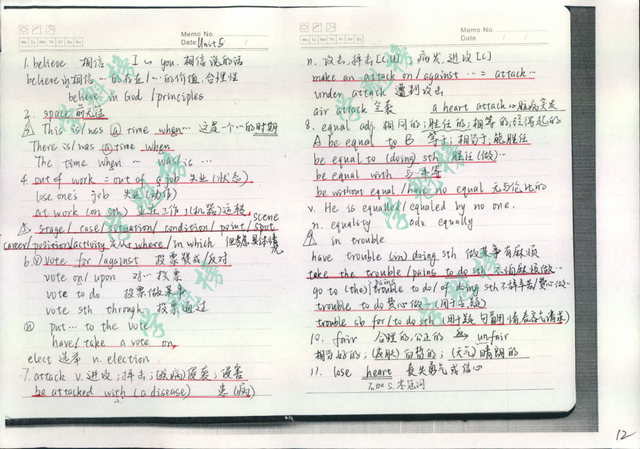 Memo No.
Mo Tu We Th Fr Sa Su
Date Unit 5
1. believe 相信 I ~ you. 相信说的话
believe in 相信…的存在/…的价值,合理性
believe in God / principles
2. space 前无冠
This is/was a time when… 这是个…的时期
There is/was a time when
The time when … was/is …
4. out of work = out of a job 失业(状态)
lose one's job 失业(动作)
at work (on sth)
stage / case / situation / condition / point / spot
scene
career/position/activity where / in which
6. v vote for / against 投票赞成/反对
vote on / upon 对…投票
vote to do 投票做某事
vote sth through 投票通过
n put … to the vote
have / take a vote on
elect 选举 n. election
7. attack v. 进攻;抨击;(疾病)侵袭;侵害
be attacked with (a disease) 患(病)
Memo No.
Mo Tu We Th Fr Sa Su
Date
n. 攻击,抨击[C,U] 病发,进攻[C]
make an attack on / against … = attack …
under attack 遭到攻击
air attack 空袭 a heart attack 心脏病突发
8. equal adj. 相同的;胜任的;相等的;
A be equal to B 等于;相当于;能胜任
be equal to (doing) sth 胜任(做)…
be equal with 与…平等
be without equal / have no equal 无与伦比的
v. He is equalled / equaled by no one.
n. equality adv. equally
in trouble
have trouble (in) doing sth 做某事有麻烦
take the trouble / pains to do sth 不怕麻烦做…
pains
go to (the) trouble to do / of doing sth 不辞辛苦/费心做…
trouble to do 费心做…
trouble sb for / to do sth
10. fair 合理的,公正的 unfair
相当好的;(皮肤)白皙的;(天气)晴朗的
11. lose heart 丧失勇气或信心
不加s, 零冠词
12
学科榜
学科榜
学科榜
学科榜
学科榜
学科榜